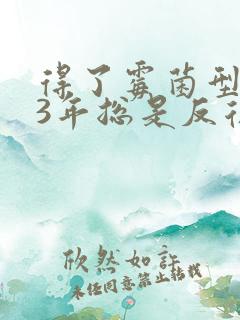 得了霉菌型
3年总是反
欣然如许
未经同意禁止转载